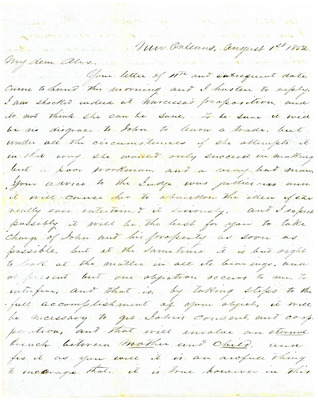 New Orleans, August 1st 1852
My Dear Alex.
Your letter of 11th and subsequent date
came to hand this morning and I hasten to reply.
I am shocked indeed at Narcissa's proposition and
do not think she can be sane. To be sure it will
be no disgrace to John to learn a trade, but
under all the circumstances if she attempts it
in this way she would only succeed in making
but a poor workman, and a very bad man.
Your advice to the Judge was judicious and
it will cause her to abandon the idea if she
really ever entertained it seriously, and I expect
possibly it will be the best for you to take
charge of John and his property as soon as
possible, but at the same time it is but right
to look at the matter in all its bearings, and
at present but one objection occurs to me to
interfere, and that is by taking steps to the
full accomplishment of your object, it will
be necessary to get John's consent and coop-
peration, and that will involve an eternal
breach between Mother and Child. and
fix it as you will it is an awful thing
to encourage that. it is true however in this